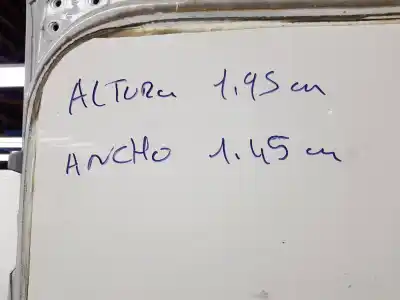 ALTURA 1.95 cm
ANCHO 1.45 cm